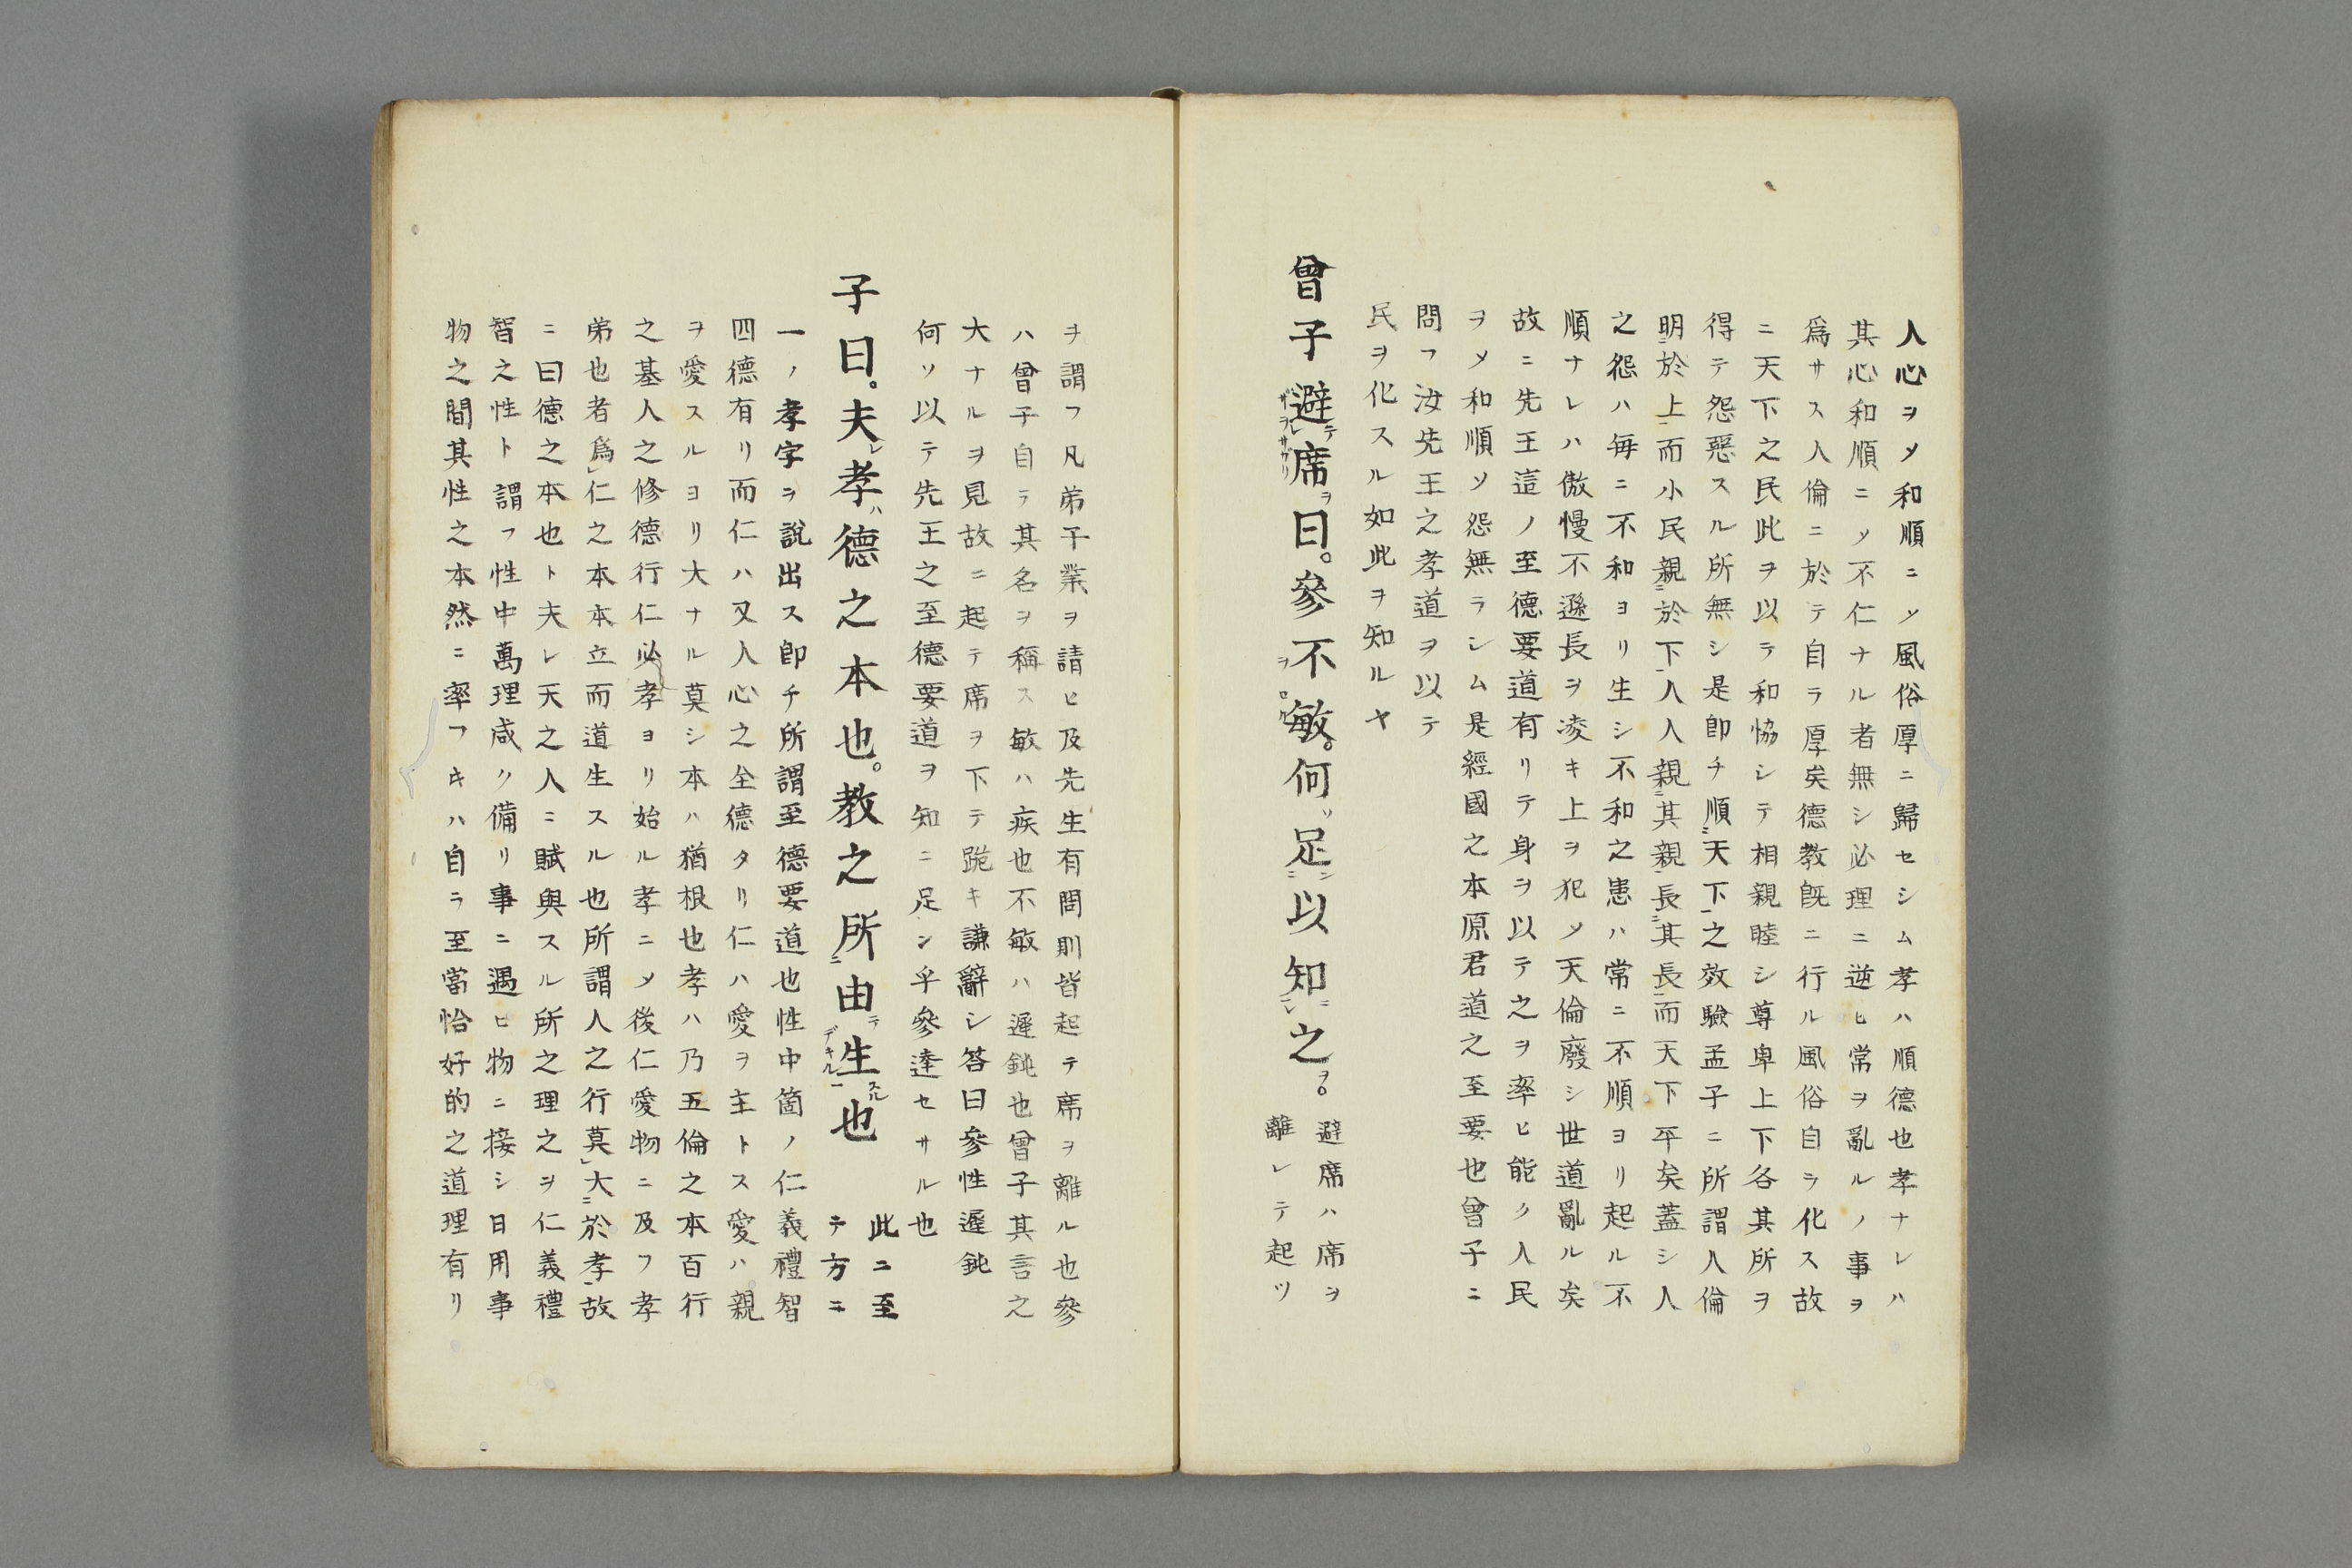 人心ヲメ和順ニソ風俗厚ニ歸セシム孝ハ順德也孝ナレハ
其心和順ニソ不仁ナル者無シ必理ニ逆ヒ常ヲ亂ルノ事ヲ
爲サス人倫ニ於テ自ラ厚矣德教既ニ行ル風俗自ラ化ス故
ニ天下之民此ヲ以ラ和協シテ相親睦シ尊卑上下各其所ヲ
得テ怨惡スル所無シ是即チ順ニ天下一之效驗孟子ニ所謂人倫
明ニ於上一而小民親ニ於下一人人親ニ其親一長ニ其長一而天下平矣蓋シ人
之怨ハ毎ニ不和ヨリ生シ不和之患ハ常ニ不順ヨリ起ル不
順ナレハ傲慢不遜長ヲ凌キ上ヲ犯メ天倫廢シ世道亂ル矣
故ニ先王這ノ至德要道有リテ身ヲ以テ之ヲ率ヒ能ク人民
ヲメ和順ソ怨無ラシム是經國之本原君道之至要也曾子ニ
問フ汝先王之孝道ヲ以テ
民ヲ化スル如此ヲ知ルヤ
曾子避レテ席ヲ曰。參不敏。何ソ足ンニ以知ニ之ヲ。
避席ハ席ヲ
離レテ起ツ
ヲ謂フ凡弟子業ヲ請ヒ及先生有問則皆起テ席ヲ離ル也參
ハ曾子自テ其名ヲ稱ス敏ハ疾也不敏ハ遲鈍也曾子其言之
大ナルヲ見故ニ起テ席ヲ下テ跪キ謙辭シ答曰參性遲鈍
何ソ以テ先王之至德要道ヲ知ニ足ン乎參達セサル也
子曰。夫レ孝ハ德之本也。教之所ニ由テ生スル也
此ニ至
テ方ニ
一ノ孝字ヲ說出ス即チ所謂至德要道也性中箇ノ仁義禮智
四德有リ而仁ハ又人心之全德タリ仁ハ愛ヲ主トス愛ハ親
ヲ愛スルヨリ大ナル莫シ本ハ猶根也孝ハ乃五倫之本百行
之基人之修德行仁必孝ヨリ始ル孝ニメ後仁愛物ニ及フ孝
弟也者爲レ仁之本本立而道生スル也所謂人之行莫レ大ニ於孝一故
ニ曰德之本也ト夫レ天之人ニ賦與スル所之理之ヲ仁義禮
智之性ト謂フ性中萬理咸ク備リ事ニ遇ヒ物ニ接シ日用事
物之間其性之本然ニ率フキハ自ラ至當恰好的之道理有リ